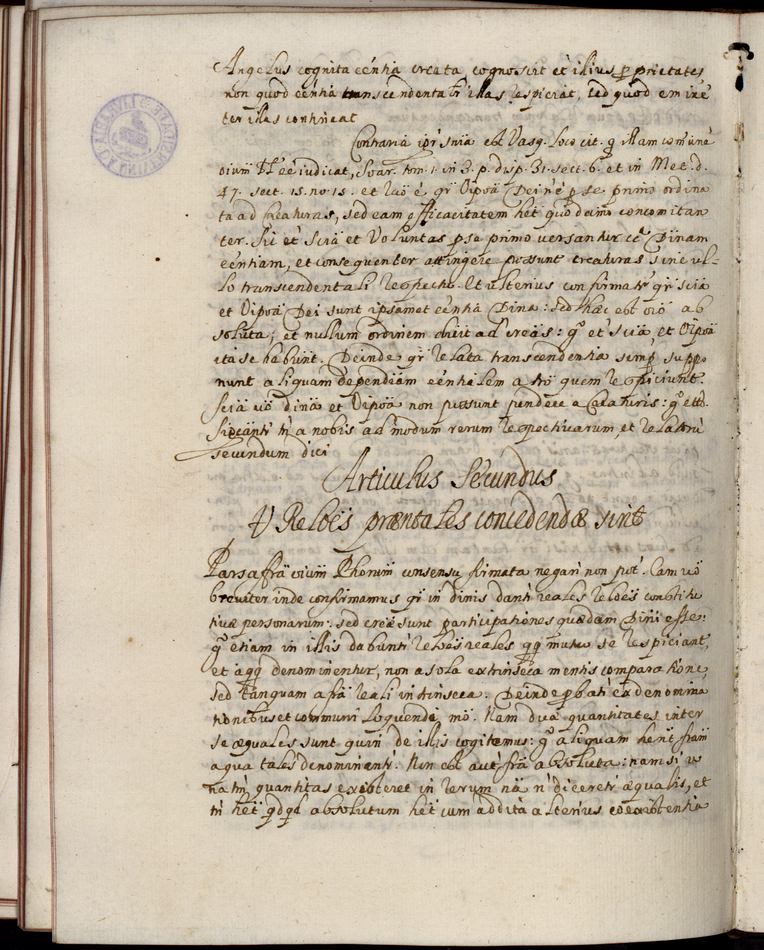 Angelus cognita eéntia creata cognoscit et illius pprietates
non quod eéntia transcendentalr illas respiciat, sed quod eminé
ter illas contineat
Contraria ipi snia est Vasq. loco cit. q illam comuné
oium ee iudicat, Soar. tom. 1. in 3. p. disp. 31. sect. 6. et in Met. d.
47. sect. 15. no. 15. et ideo é qr Oipoä Dei né p se primo ordina
ta ad creaturas, sed eam efficacitatem het quodam concomitan
ter. Sic et sciä et Voluntas p se primo versantur Dinam
eéntiam, et consequenter attingere possunt creaturas sine ul-
lo transcendentali respectu. Et ulterius confirmatr qr sciä
et Oipoä Dei sunt ipsamet eéntia Dina: sed haec est oió ab
soluta, et nullum ordinem dicit ad creäs: gº et sciä et Oipoä
ita se habunt. Deinde qr relata transcendentia semp suppo
nunt aliquam dependiäm eéntialem a tró quem respiciunt.
Sciä vó dina et Oipoä non possunt pendere a Creaturis: gº ettc.
Dicúntr tn a nobis ad modum rerum respectivarum, et relatorú
secundum dici
Articulus Secundus
V Reloës praentales concedendae sint
Pars affrä oium Phorum consensu firmata negari non pot. Eam vó
breviter inde confirmamus qr in dinis dantr reales reloës constitu
tivae personarum: sed creae sunt participationes quaedam Dini esse:
gº etiam in illis dabuntr reloës reales qq mutuo se respiciant,
et a qq denominentur, non a sola extrinseca mentis comparatione,
sed tanquam a frä reali intrinseca. Deinde pbatr ex denomina
tionibus et communi loquendi mó. Nam duae quantitates inter
se aequales sunt quin de illis cogitemus: gº aliquam hent främ
a qua tales denominentr. Non est aut frä absoluta: nam si u
na tm quantitas existeret in rerum nä n diceretr aequalis, et
tn het qdqd absolutum het cum addita alterius coexistentia